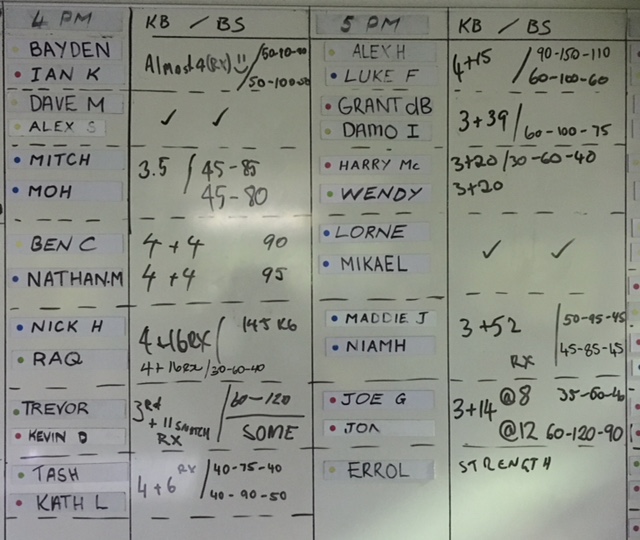 4 PM KB / BS
BAYDEN Almost 4(RX) /50-90-90
IAN K 50-100-50
DAVE M ✓ ✓
ALEX S
MITCH 3.5 / 45-85
MOH 45-80
BEN C 4+4 90
NATHAN.M 4+4 95
NICK H 4+16RX / 145 KG
RAQ 4+16RX/30-60-40
TREVOR 3Rd /60-120
+ 11 SNATCH
KEVIN D RX SOME
TASH RX /40-75-40
KATH L 4+6 40-90-50
5 PM KB / BS
ALEX H 4+15 / 90-150-110
LUKE F 60-100-60
GRANT dB 3+39/
DAMO I 60-100-75
HARRY Mc 3+20 /30-60-40
WENDY 3+20
LORNE ✓ ✓
MIKAEL
MADDIE J 3+52 50-95-45
NIAMH RX 45-85-45
JOE G 3+14 @8 35-60-40
JON @12 60-120-90
ERROL STRENGTH